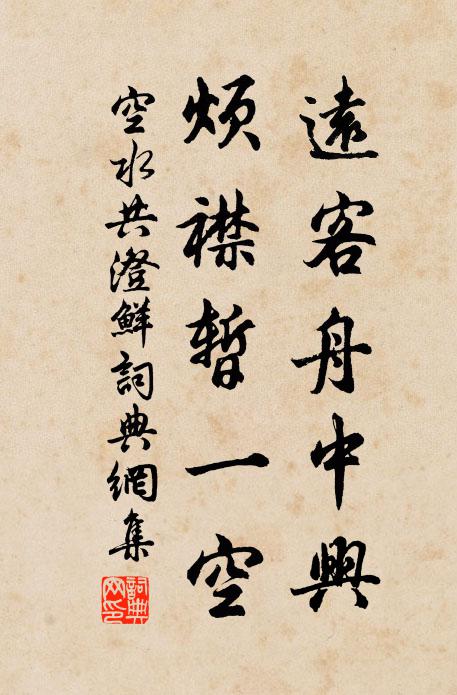 遠客舟中興
煩襟暫一空
空水共澄鮮詞典網集
詞典网印